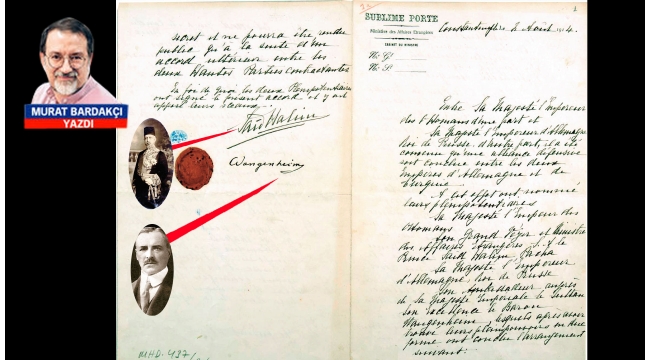 MURAT BARDAKÇI
YAZDI
secret et ne pourra être rendu
public qu'à la suite d'un
accord ultérieur entre les
deux Hautes Parties Contractantes
En foi de quoi les deux Plénipotentiaires
ont signé le présent accord et y ont
apposé leurs sceaux.
Saïd Halim
Wangenheim
MHD-437/
SUBLIME PORTE
Ministère des Affaires Étrangères
CABINET DU MINISTRE
Nº G
Nº S
Constantinople 2 Août 14.
Entre Sa Majesté l'Empereur
des Ottomans d'une part et
Sa Majesté l'Empereur d'Allemagne
Roi de Prusse d'autre part, il a été
convenu qu'une alliance défensive
soit conclue entre les deux
Empires d'Allemagne et de
Turquie.
A cet effet ont nommé
leurs plénipotentiaires
Sa Majesté l'Empereur des
Ottomans
Son Grand Vézir et Ministre
des Affaires Etrangères S. A. le
Prince Saïd Halim Pacha
Sa Majesté l'Empereur
d'Allemagne, Roi de Prusse
Son Ambassadeur auprès
de Sa Majesté Impériale le Sultan
Son Excellence le Baron
Wangenheim, lesquels après avoir
trouvé leurs pleinpouvoirs en due
forme ont conclu l'arrangement
suivant: